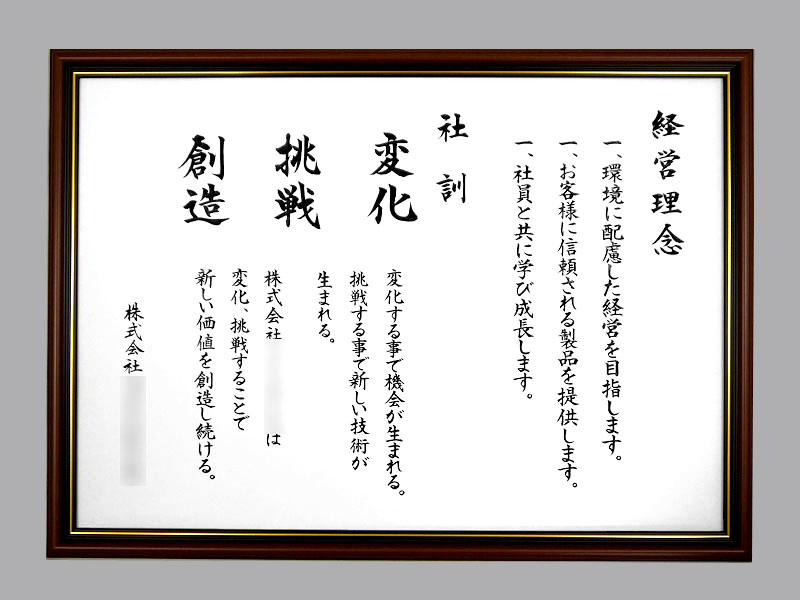 経営理念
一、環境に配慮した経営を目指します。
一、お客様に信頼される製品を提供します。
一、社員と共に学び成長します。
社訓
変化
挑戦
創造
変化する事で機会が生まれる。
挑戦する事で新しい技術が
生まれる。
株式会社 は
変化、挑戦することで
新しい価値を創造し続ける。
株式会社